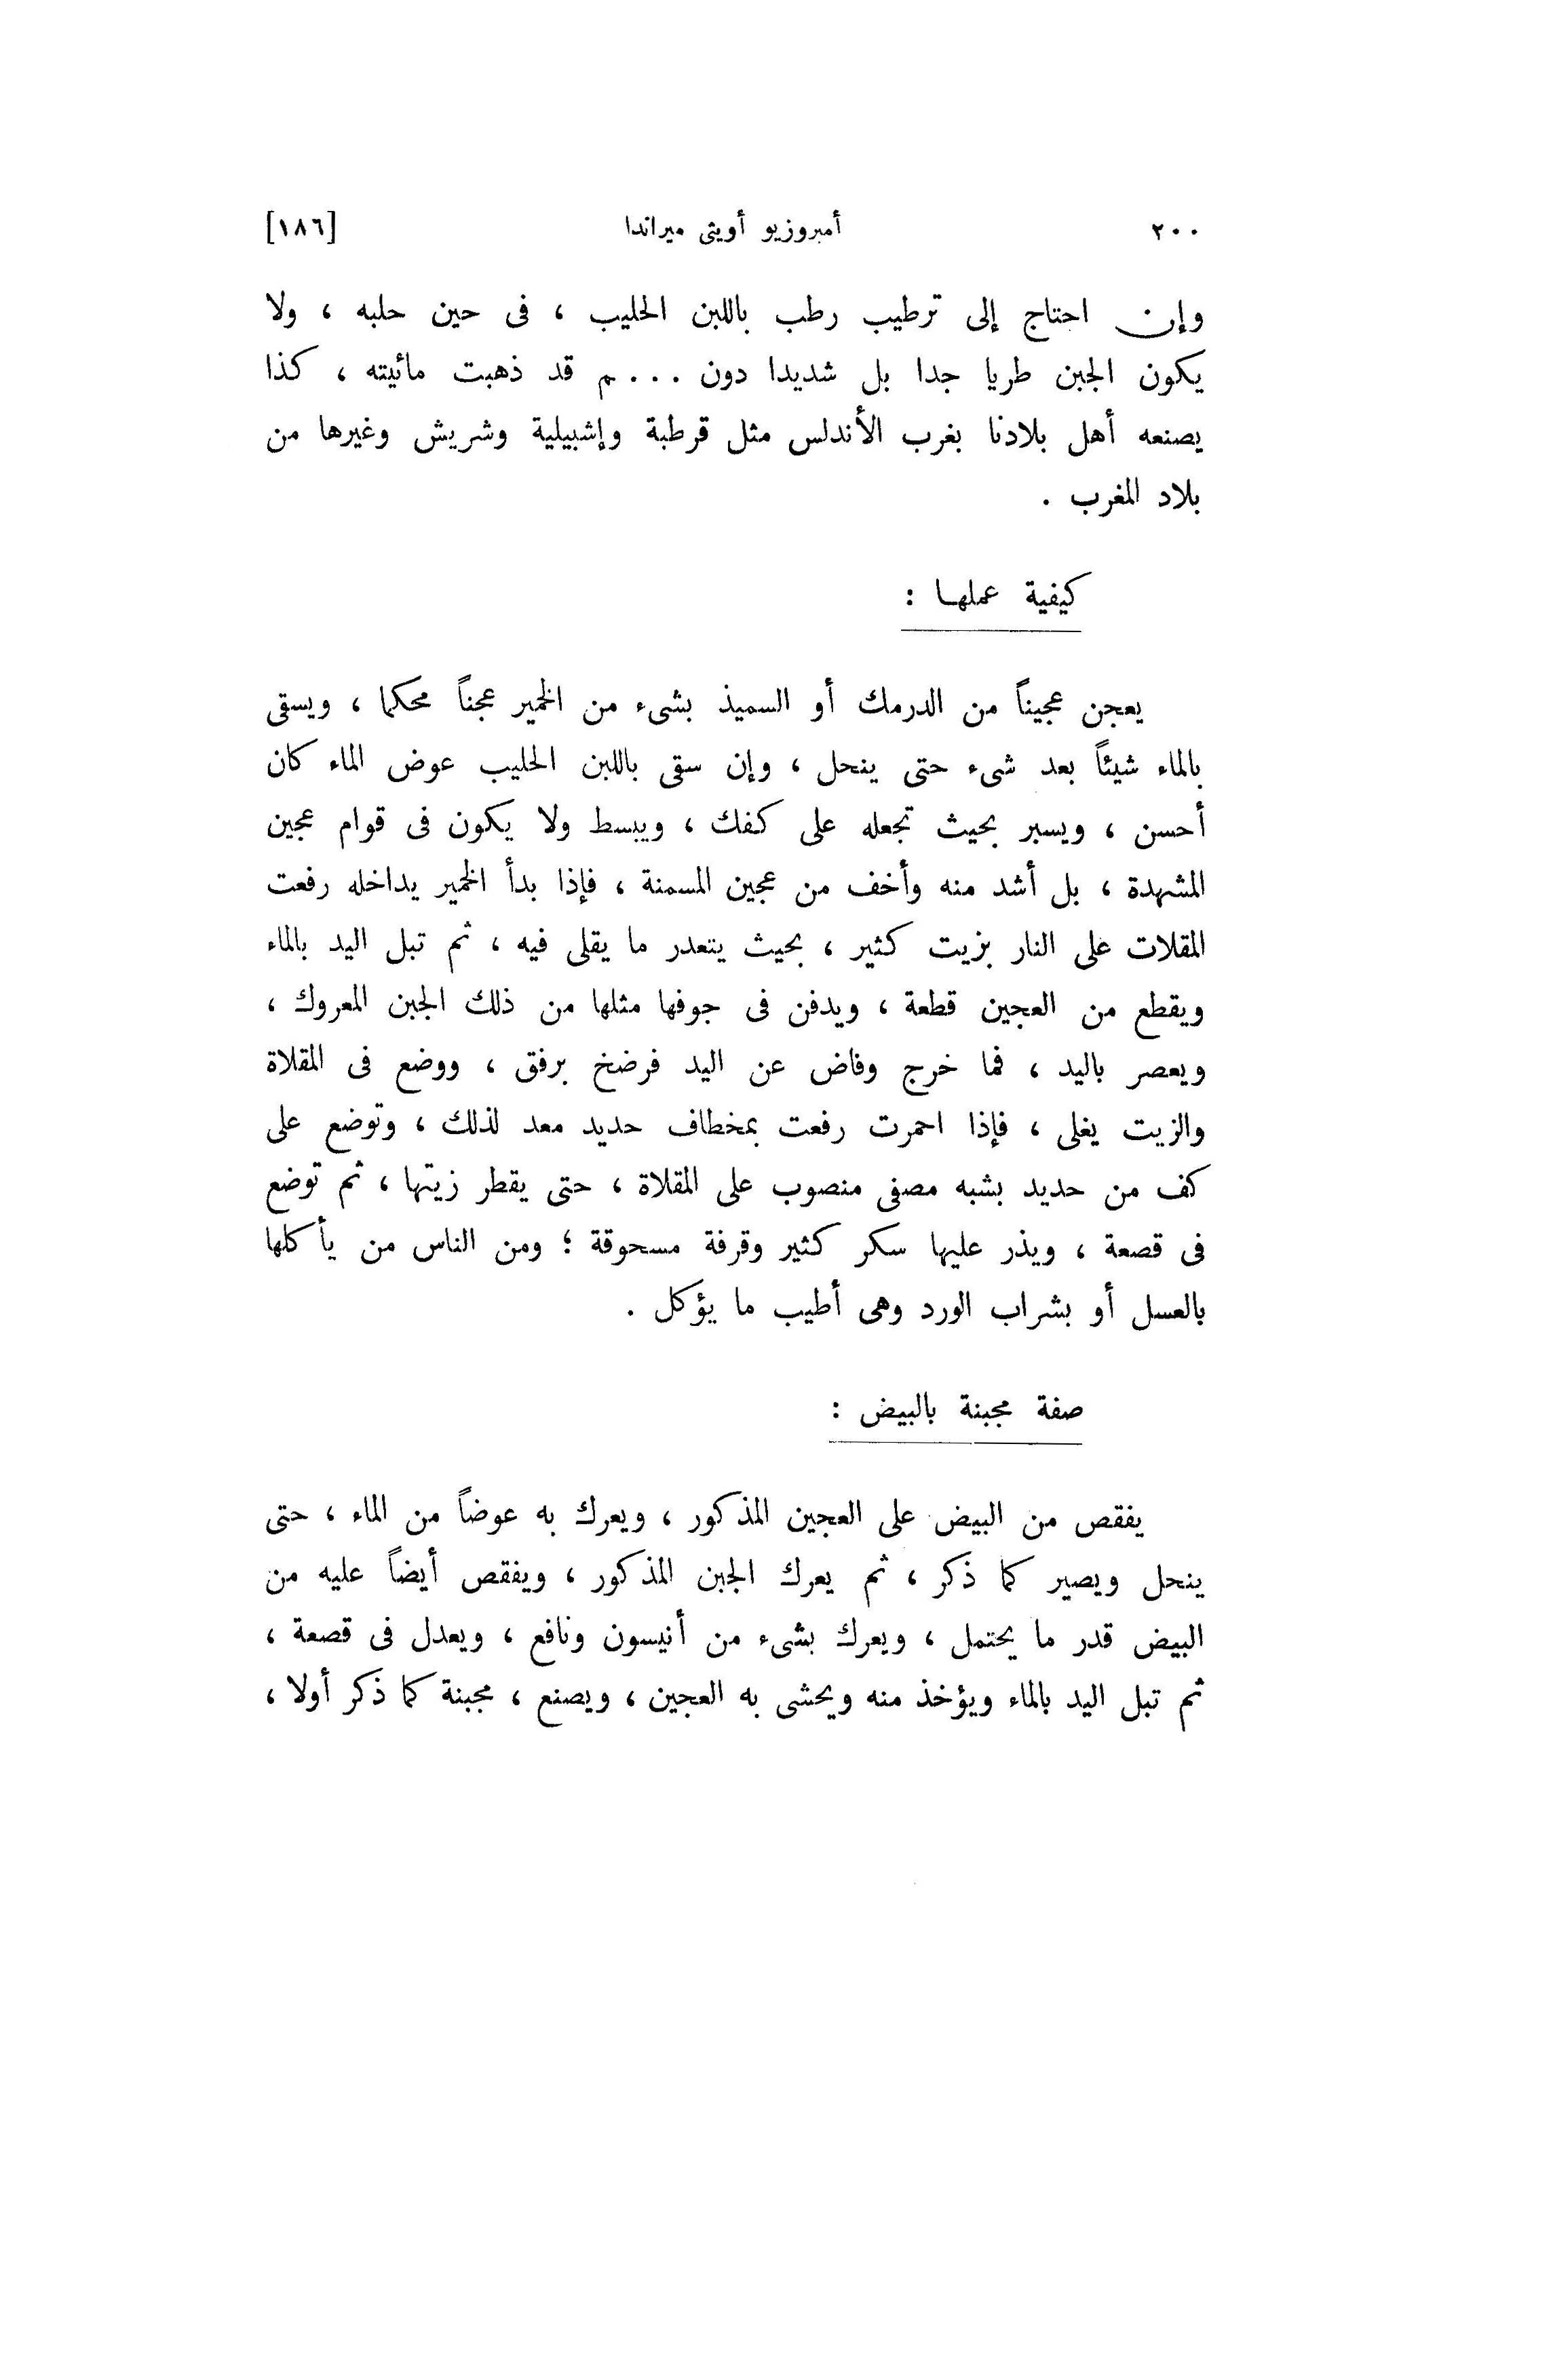 ٢٠٠ أمبروزيو أويثى ميراندا [١٨٦]
وإن احتاج إلى ترطيب رطب باللبن الحليب ، فى حين حلبه ، ولا
يكون الجبن طريا جدا بل شديدا دون ... م قد ذهبت مائيته ، كذا
يصنعه أهل بلادنا بغرب الأندلس مثل قرطبة وإشبيلية وشريش وغيرها من
بلاد المغرب .
كيفية عملها :
يعجن عجيناً من الدرمك أو السميذ بشىء من الخمير عجناً محكما ، ويسقى
بالماء شيئاً بعد شىء حتى ينحل ، وإن سقى باللبن الحليب عوض الماء كان
أحسن ، ويسبر بحيث تجعله على كفك ، ويبسط ولا يكون فى قوام عجين
المشهدة ، بل أشد منه وأخف من عجين المسمنة ، فإذا بدأ الخمير يداخله رفعت
المقلات على النار بزيت كثير ، بحيث يتعدر ما يقلى فيه ، ثم تبل اليد بالماء
ويقطع من العجين قطعة ، ويدفن فى جوفها مثلها من ذلك الجبن المعروك ،
ويعصر باليد ، فما خرج وفاض عن اليد فرضخ برفق ، ووضع فى المقلاة
والزيت يغلى ، فإذا احمرت رفعت بمخطاف حديد معد لذلك ، وتوضع على
كف من حديد بشبه مصفى منصوب على المقلاة ، حتى يقطر زيتها ، ثم توضع
فى قصعة ، ويذر عليها سكر كثير وقرفة مسحوقة ؛ ومن الناس من يأكلها
بالعسل أو بشراب الورد وهى أطيب ما يؤكل .
صفة مجبنة بالبيض :
يفقص من البيض على العجين المذكور ، ويعرك به عوضاً من الماء ، حتى
ينحل ويصير كما ذكر ، ثم يعرك الجبن المذكور ، ويفقص أيضاً عليه من
البيض قدر ما يحتمل ، ويعرك بشىء من أنيسون ونافع ، ويعدل فى قصعة ،
ثم تبل اليد بالماء ويؤخذ منه ويحشى به العجين ، ويصنع ، مجبنة كما ذكر أولا ،